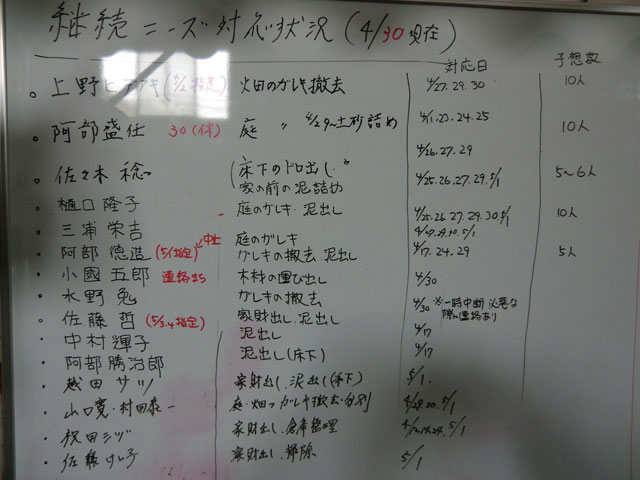 継続ニーズ対応状況(4/30現在)
対応日 予想数
上野ヒデアキ(5/2指定) 畑のガレキ撤去 4/27.29.30 10人
阿部盛任 30(休) 庭 〃 4/29〜土砂詰め 4/1.23.24.25 10人
4/26.27.29
佐々木 稔 床下のドロ出し 5〜6人
家の前の泥詰め 4/25.26.27.29.5/1
樋口隆子 庭のガレキ・泥出し 4/25.26.27.29.30.5/1 10人
三浦栄吉 庭のガレキ
阿部徳造(5/1指定)←中止 ガレキの撤去 泥出し 4/17.24.29 5人
小國五郎 連絡まち 木材の運び出し 4/30
水野勉 ガレキの撤去 4/30 ※一時中断 必要な際に連絡あり
佐藤哲(5/3.4指定) 家財出し.泥出し
中村輝子 泥出し 4/17
阿部勝治郎 泥出し(床下) 4/17
越田サツ 家財出し.泥出し(床下) 5/1.
山口寛・村田泰一 庭・畑のガレキ撤去・分別
牧田シヅ 家財出し.倉庫整理
佐藤けい子 家財出し.掃除 5/1